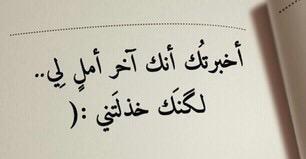 أخبرتُك أنك آخر أملٍ لِي..
لگنَك خذلَتني :(